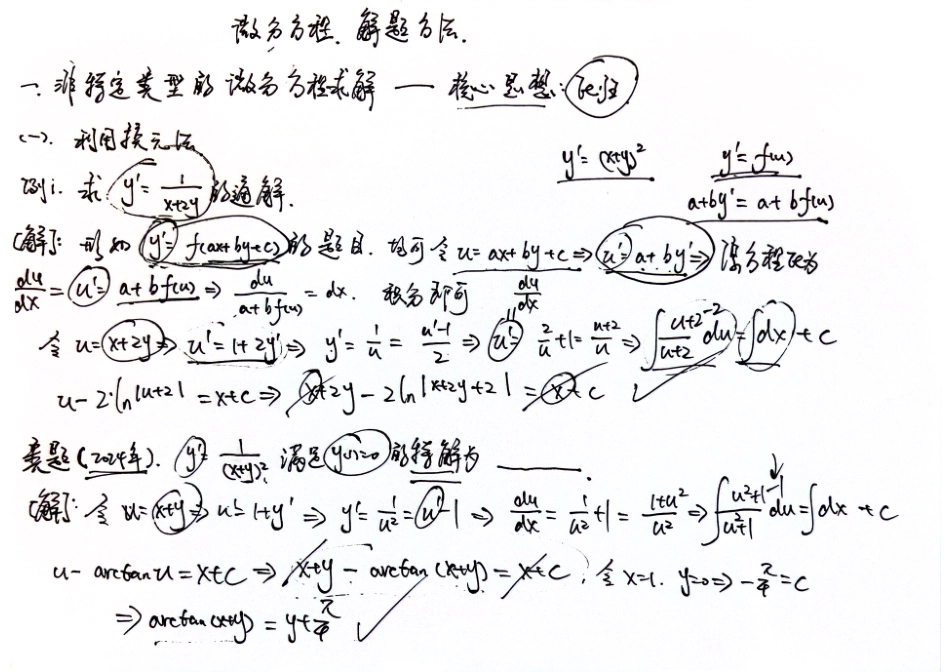 微分方程. 解题方法.
一. 非特定类型的微分方程求解 — 核心思想:
(一). 利用换元法
y'=(x+y)² y'=f(u)
例1. 求 y'=1/(x+2y) 的通解. a+by'=a+bf(u)
[解]: 形如 y'=f(ax+by+c) 的题目. 均可令 u=ax+by+c ⇒ u'=a+by' ⇒ 原方程改为
du/dx = u' = a+bf(u) ⇒ du/(a+bf(u)) = dx. 积分即可 du/dx
令 u=x+2y ⇒ u'=1+2y' ⇒ y'=1/u=(u'-1)/2 ⇒ u'=2/u+1=(u+2)/u ⇒ ∫(u+2-2)/(u+2) du=∫dx+c
u-2·ln|u+2|=x+c ⇒ x+2y-2ln|x+2y+2|=x+c ✓
类题(2024年). y'=1/(x+y)², 满足y(1)=0的特解为 ______.
[解]: 令 u=x+y ⇒ u'=1+y' ⇒ y'=1/u²=u'-1 ⇒ du/dx=1/u²+1=(1+u²)/u² ⇒ ∫(u²+1-1)/(u²+1) du=∫dx+c
u-arctanu=x+c ⇒ x+y-arctan(x+y)=x+c. 令 x=1. y=0 ⇒ -π/4=c
⇒ arctan(x+y)=y+π/4 ✓